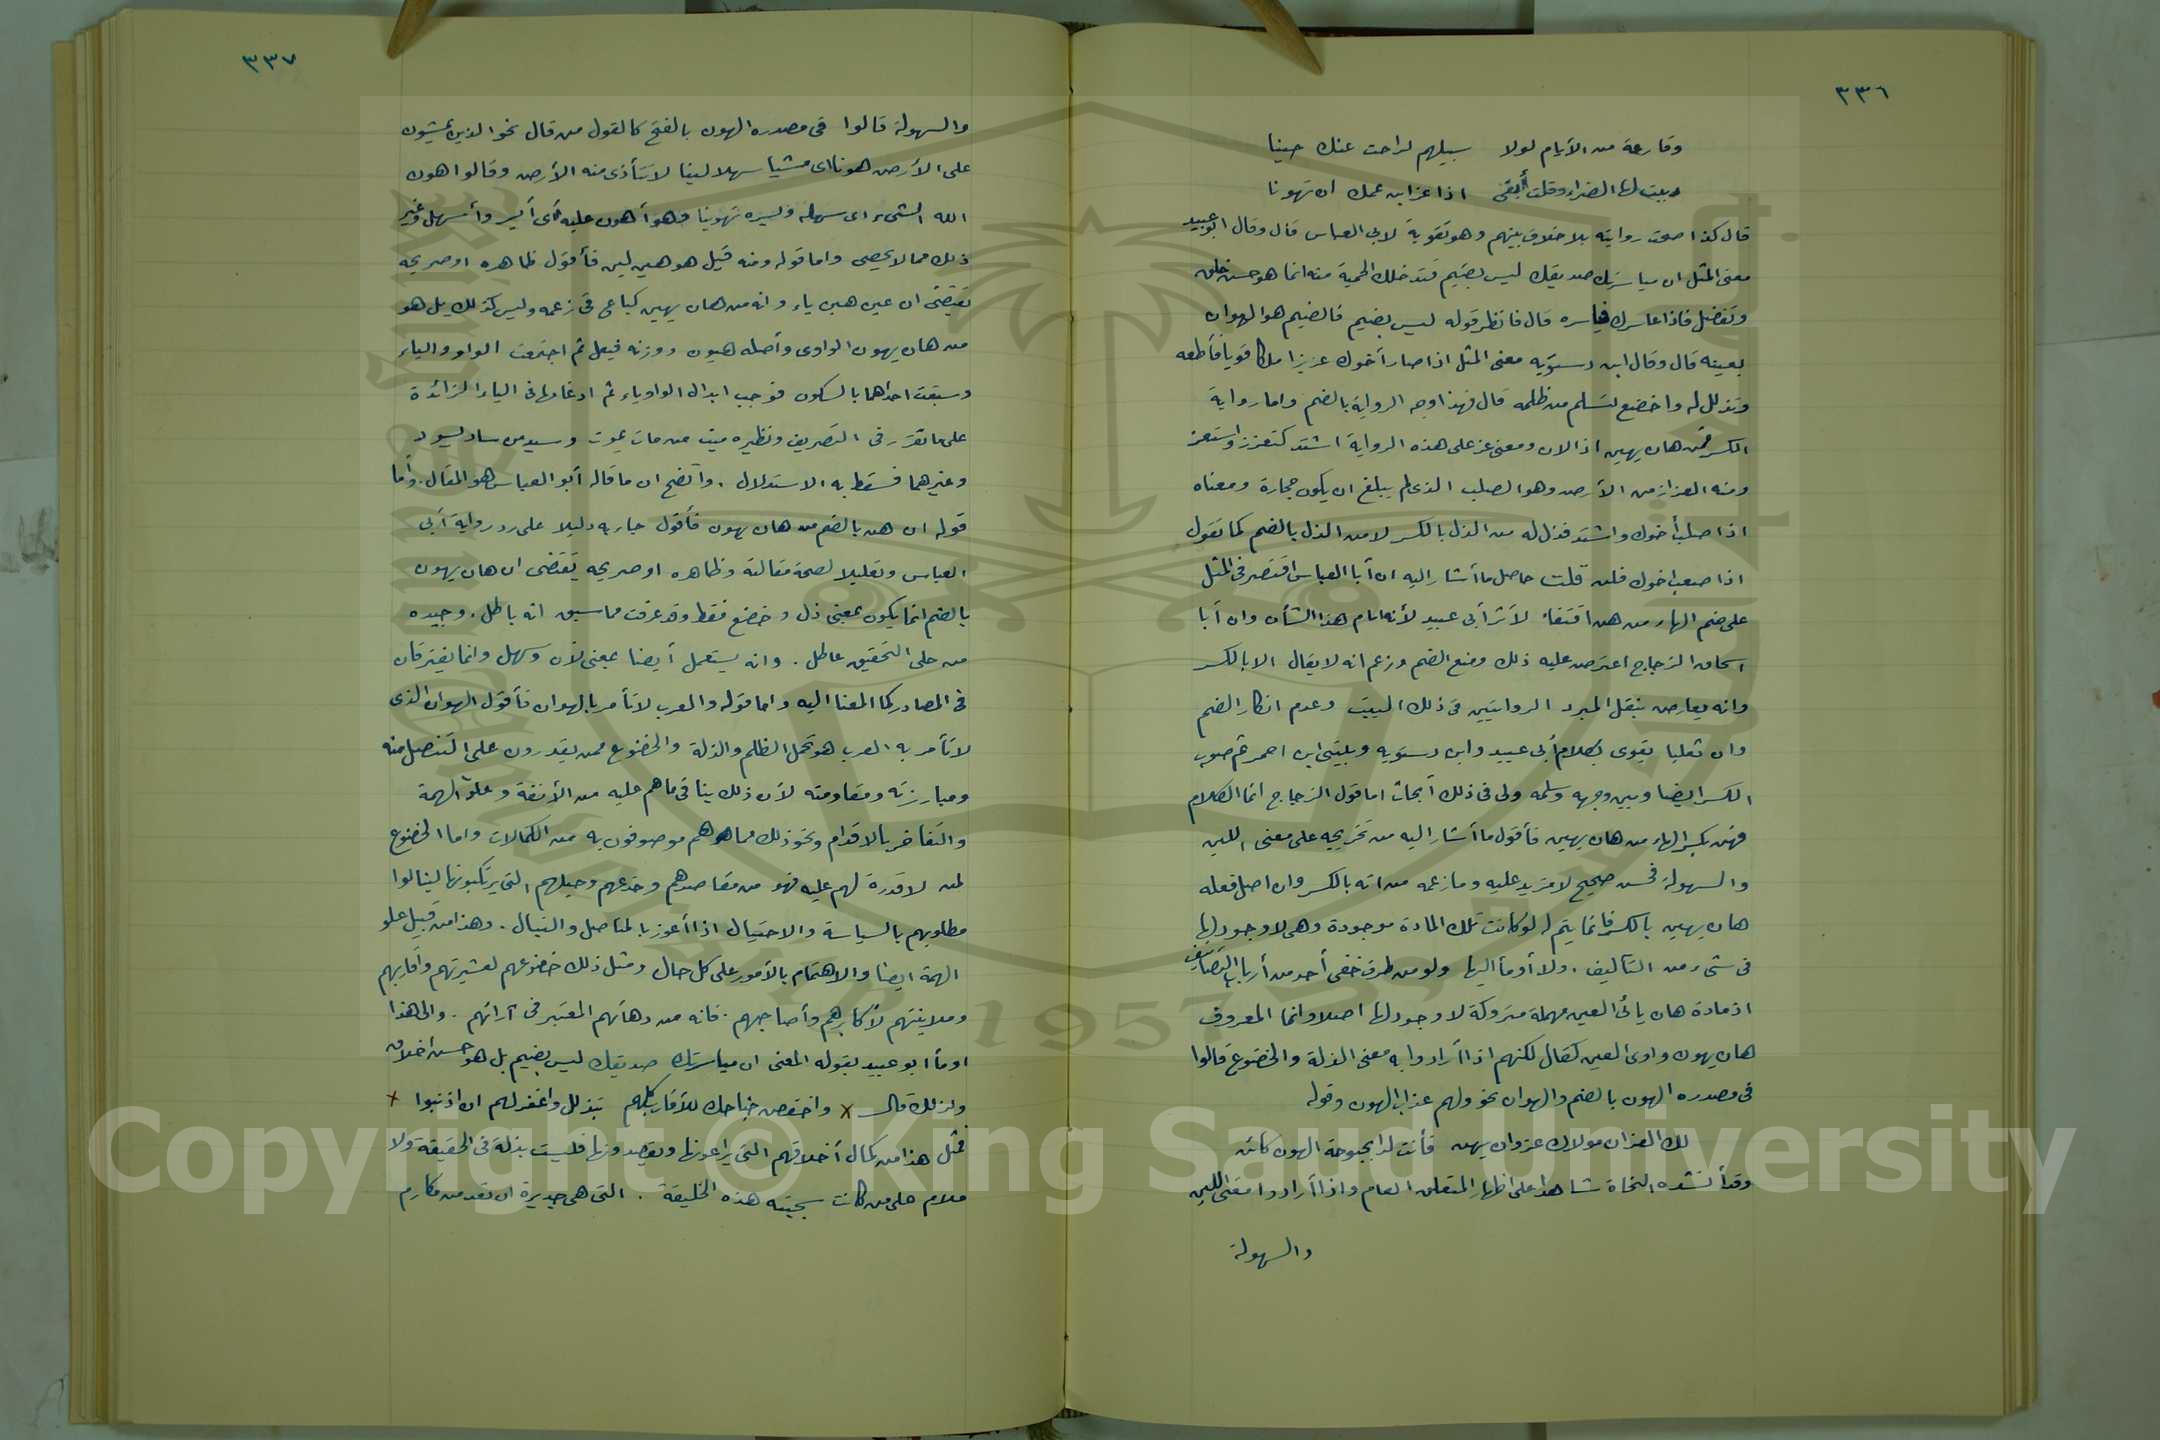 ٣٣٦
وقارعة من الأيام لولا سبيلهم لراحت عنك حينا
دببت لها الضراء وقلت أبقى اذا عز ابن عمك ان تهونا
قال كذا صحت روايته بلا خلاف بينهم وهو تقوية لابي العباس قال وقال ابو عبيد
معنى المثل ان مياسرتك صديقك ليس بضيم فتدخلك الحمية منه انما هو حسن خلق
وتفضل فاذا عاسرك فياسره قال فانظر قوله ليس بضيم فالضيم هو الهوان
بعينه قال وقال ابن درستويه معنى المثل اذا صار أخوك عزيزا ملكا قويا فأطعه
وتذلل له واخضع لتسلم من ظلمه قال فهذا وجه الرواية بالضم واما رواية
الكسر فمن هان يهين اذا لان ومعنى عز على هذه الرواية اشتد كتعزز واستعز
ومنه العزاز من الأرض وهو الصلب الذى لم يبلغ ان يكون حجارة ومعناه
اذا صلب أخوك واشتد فذل له من الذل بالكسر لا من الذل بالضم كما تقول
اذا صعب اخوك فلن قلت حاصل ما أشار اليه ان أبا العباس اقتصر فى المثل
على ضم الهاء من هن اقتفاء لأثر أبى عبيد لأنه امام هذا الشأن وان أبا
اسحاق الزجاج اعترض عليه ذلك ومنع الضم وزعم انه لا يقال الا بالكسر
وانه يعارض بنقل المبرد الروايتين فى ذلك البيت وعدم انكار الضم
وان ثعلبا يقوى بكلام أبى عبيد وابن درستويه وببيتى ابن احمر ثم صوب
الكسر ايضا وبين وجهه وسلمه ولى فى ذلك أبحاث اما قول الزجاج انما الكلام
فهن بكسر الهاء من هان يهين فأقول ما أشار اليه من تخريجه على معنى اللين
والسهولة فحسن صحيح لا مزيد عليه وما زعمه من انه بالكسر وان اصل فعله
هان يهين بالكسر فانما يتم له لو كانت تلك المادة موجودة وهى لا وجود لها
فى شىء من التآليف . ولا أومأ اليها ولو من طرف خفى أحد من أرباب التصانيف
اذ مادة هان يائى العين مهملة متروكة لا وجود لها اصلا وانما المعروف
هان يهون واوى العين كقال لكنهم اذا أرادوا به معنى الذلة والخضوع قالوا
فى مصدره الهون بالضم والهوان نحو ولهم عذاب الهون وقوله
لك العز ان مولاك عز وان يهن فأنت لدى بحبوحة الهون كائن
وقد أنشده النحاة شاهدا على اظهار المتعلق العام واذا أرادوا معنى اللين
والسهولة
٣٣٧
والسهولة قالوا فى مصدره الهون بالفتح كالقول من قال نحو الذين يمشون
على الأرض هونا اى مشيا سهلا لينا لا تتأذى منه الأرض وقالوا هون
الله الشىء اى سهله ويسره تهوينا وهو أهون عليه أى أيسر وأسهل وغير
ذلك مما لا يحصى واما قوله ومنه قيل هو هين لين فأقول ظاهره او صريحه
يقتضى ان عين هين ياء وانه من هان يهين كباع فى زعمه وليس كذلك بل هو
من هان يهون الواوى وأصله هيون ووزنه فيعل ثم اجتمعت الواو والياء
وسبقت احداهما بالسكون فوجب ابدال الواو ياء ثم ادغامها فى الياء الزائدة
على ما تقرر فى التصريف ونظيره ميت من مات يموت وسيد من ساد يسود
وغيرهما فسقط به الاستدلال . واتضح ان ما قاله أبو العباس هو المقال . وأما
قوله ان هن بالضم من هان يهون فأقول جاء به دليلا على رد رواية أبى
العباس وتعليلا لصحة مقالته وظاهره او صريحه يقتضى ان هان يهون
بالضم انما يكون بمعنى ذل وخضع فقط وقد عرفت مما سبق انه باطل . وجيده
من حلى التحقيق عاطل . وانه يستعمل أيضا بمعنى لان وسهل وانما يفترقان
فى المصادر كما المعنا اليه واما قوله والعرب لا تأمر بالهوان فأقول الهوان الذى
لا تأمر به العرب هو تحمل الظلم والذلة والخضوع ممن يقدرون على التنصل منه
ومبارزته ومقاومته لأن ذلك ينافى ما هم عليه من الأنفة وعلو الهمة
والتفاخر بالاقدام ونحو ذلك مما هم موصوفون به من الكمالات واما الخضوع
لمن لا قدرة لهم عليه فهو من مقاصدهم وخدعهم وحيلهم التى يرتكبونها لينالوا
مطلوبهم بالسياسة والاحتيال اذا أعوز بالمناصل والنبال . وهذا من قبيل علو
الهمة ايضا والاهتمام بالأمور على كل حال ومثل ذلك خضوعهم لعشيرتهم وأقاربهم
وملاينتهم لأكابرهم وأصاحبهم . فانه من دهائهم المعتبر فى آرائهم . والى هذا
اومأ ابو عبيد بقوله المعنى ان مياسرتك صديقك ليس بضيم بل هو حسن اخلاق
ولذلك قال × واخفض جناحك للأقارب كلهم بتذلل واغفر لهم ان اذنبوا ×
فمثل هذا من كمال أخلاقهم التى يراعونها ويقصدونها فليست بذلة فى الحقيقة ولا
ملام على من كانت سجيته هذه الخليقة . التى هى جديرة ان تعد من مكارم
Copyright © King Saud University
1957